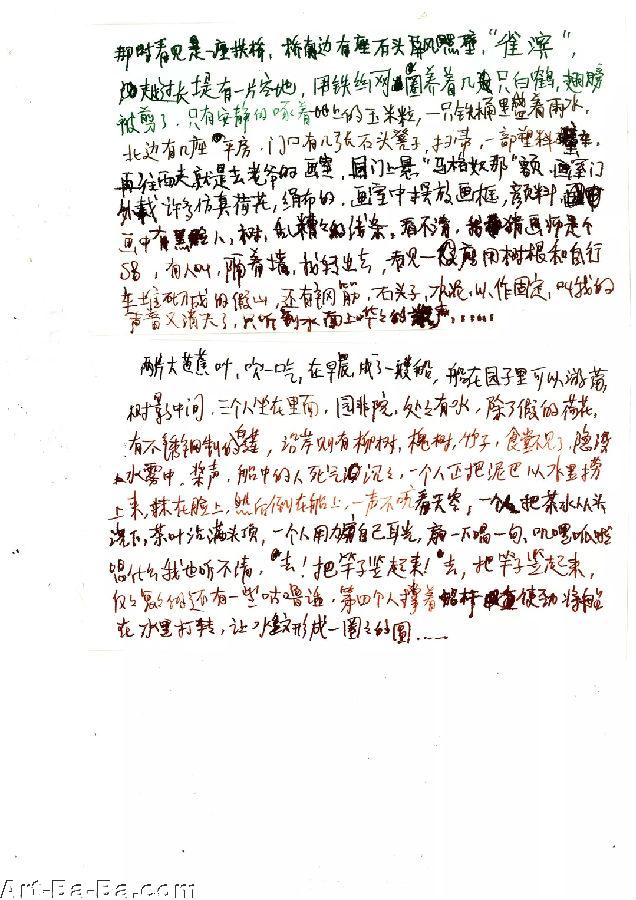 那时看见是一座铁桥,桥有边有座石头屏风照壁,"雀溟",
走过长堤有一片空地,用铁丝网圈养着几只白鹤,翅膀
被剪了,只有安静的啄着地上的玉米粒,一只铁桶里盛着雨水,
北边有几座平房,门口有几张石头凳子,扫帚,一部塑料车,
再往西走就是去老爷的画室,圆门上悬"马格奴那"额,画室门
外栽许多仿真荷花,绢布的,画室中摆放画框,颜料,
画中有黑脸人,树,乱糟々的线条,看不清,猜画师是个
SB,有人叫,隔着墙,我转过去,看见一段用树根和自行
车堆砌成的假山,还有钢筋,石头子,水泥,以作固定,叫我的
声音又消失了,只听到水面上哗々的声……
两片大芭蕉叶,吹一吃,在早晨,成了一艘船,船在园子里可以游荡,
树影中间,三个人坐在里面,园非院,处々有水,除了假的荷花,
有不锈钢制的莲,沿岸则有柳树,槐树,竹子,食堂不见了,隐
水雾中,桨声,船中的人死气沉々,一个人正把泥巴从水里捞
上来,抹在脸上,然后倒在船上,一声不吭看天空,一个人把茶水从头
浇下,茶叶沾满头顶,一个人用力扇自己耳光,扇一下唱一句,叽哩呱啦
唱什么我也听不清,"去!把竿子竖起来!"去,把竿子竖起来,
反々复々的还有一些咕噜话,第四个人撑着船杆使劲将船
在水里打转,让水纹形成一圈々的圆……
Art-Ba-Ba.com